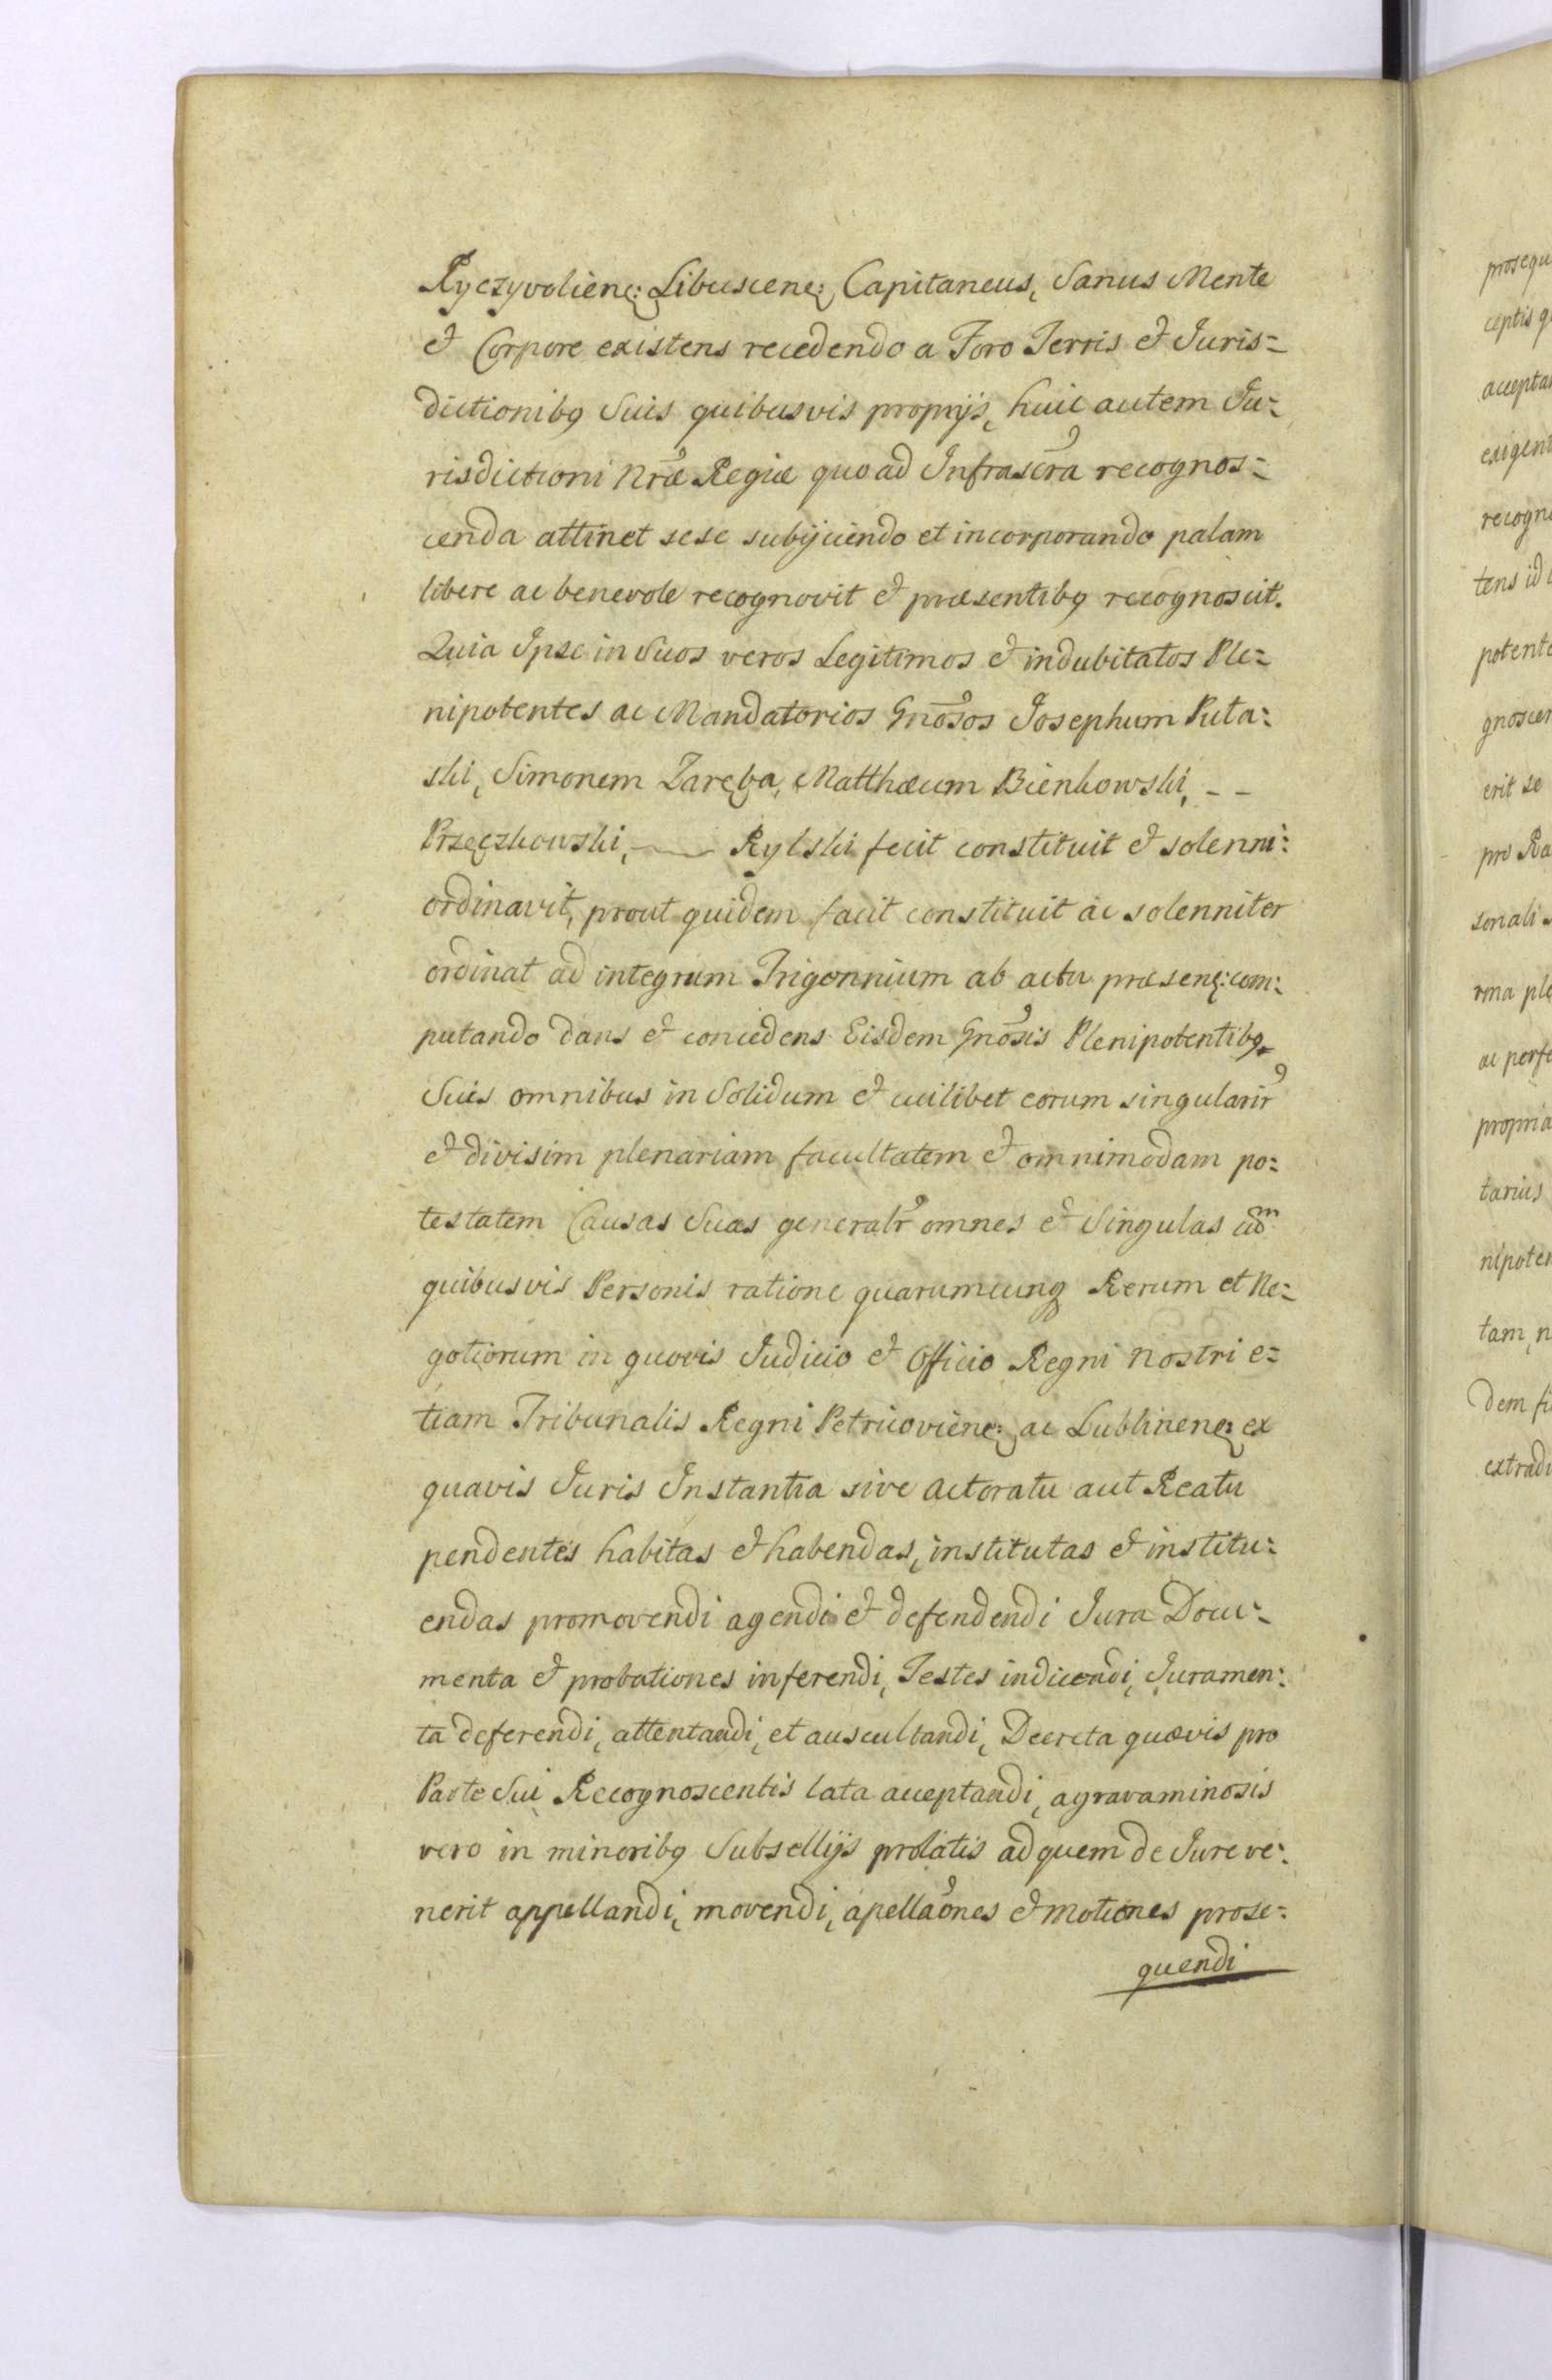 Ryczyvolienę: Libuscenę: Capitaneus, Sanus Mente
et Corpore existens recedendo a Foro Terris et Juris=
dictionibq Suis quibusvis proprijs, huic autem Ju=
risdictioni Nrae Regiae quo ad Infrascra recognos=
cenda attinet sese subijciendo et incorporando palam
libere ac benevole recognovit et praesentibq recognoscit.
Quia Ipse in Suos veros Legitimos et indubitatos Ple=
nipotentes ac Mandatorios Gnosos Josephum Puta:
ski, Simonem Zaręba, Matthaeum Bienkowski, - -
Przęczkowski, —— Rylski fecit constituit et solenni:
ordinavit, prout quidem facit constituit ac solenniter
ordinat ad integrum Trigennium ab actu praesenę: com:
putando dans et concedens Eisdem Gnosis Plenipotentibq
Suis omnibus in Solidum et cuilibet eorum singularir
et divisim plenariam facultatem et omnimodam po:
testatem Causas Suas generalr omnes et Singulas cum
quibusvis Personis ratione quarumcunq Rerum et Ne=
gotiorum in quovis Judicio et Officio Regni Nostri e=
tiam Tribunalis Regni Petricovienę: ac Lublinenę: ex
quavis Juris Instantia sive Actoratu aut Reatu
pendentes habitas et habendas, institutas et institu:
endas promovendi agendi et defendendi Jura Docu=
menta et probationes inferendi, Testes indicendi, Juramen:
ta deferendi, attentandi, et auscultandi, Decreta quaevis pro
Parte Sui Recognoscentis lata acceptandi, agravaminosis
vero in minoribq Subsellijs prolatis ad quem de Jure ve:
nerit appellandi, movendi, apellaones et Motiones prose:
quendi
prosequ
ceptis q
acceptan
exigent
recogno
tens id
potente
gnoscen
erit se
pro Ra
sonali
rma ple
ac perfe
propria
tarius
nipoten
tam, n
dem fi
extradi